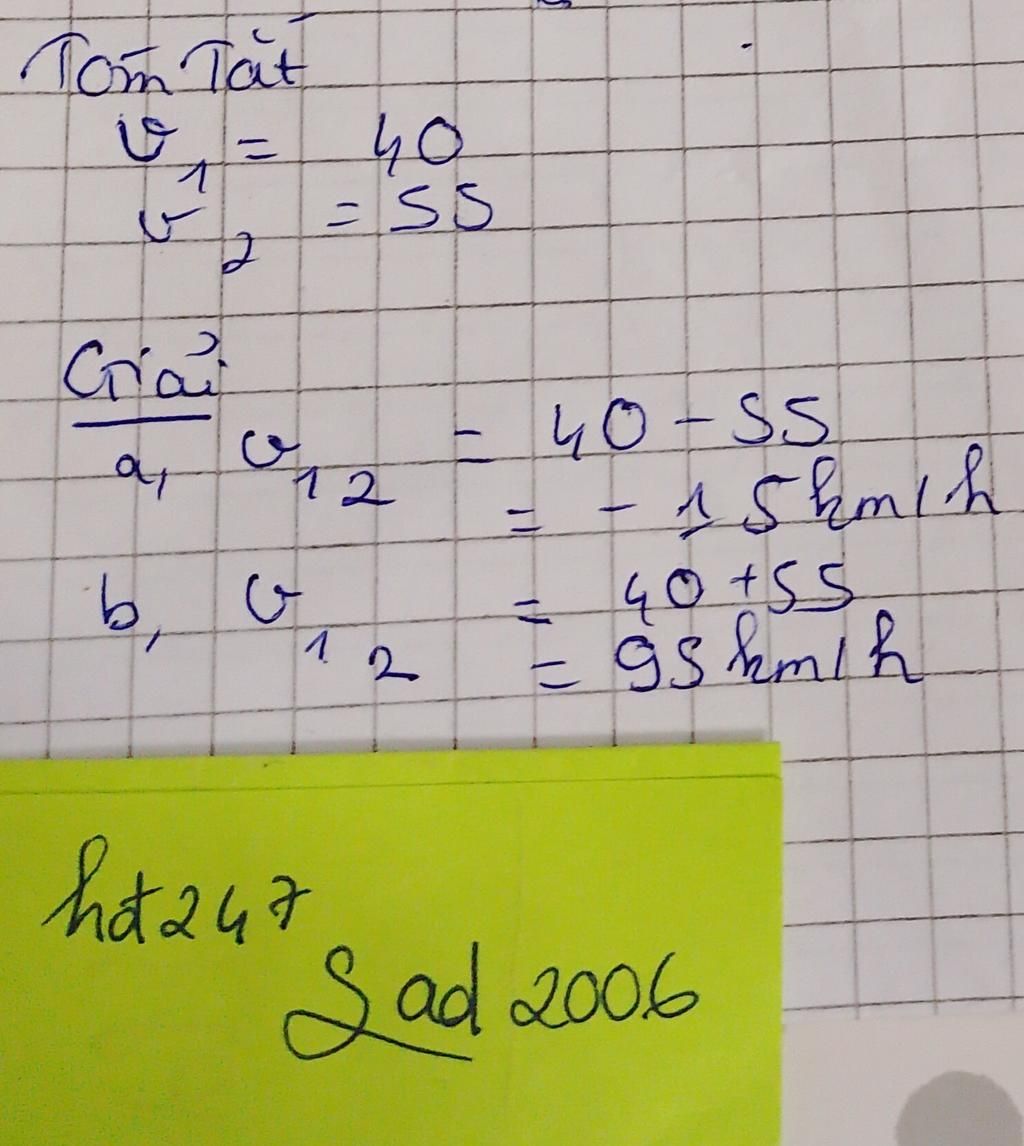 Tóm Tắt
v1 = 40
v2 = 55
Giải
a, v12 = 40 - 55
= - 15km/h
b, v12 = 40 + 55
= 95km/h
hdt247
Sad 2006